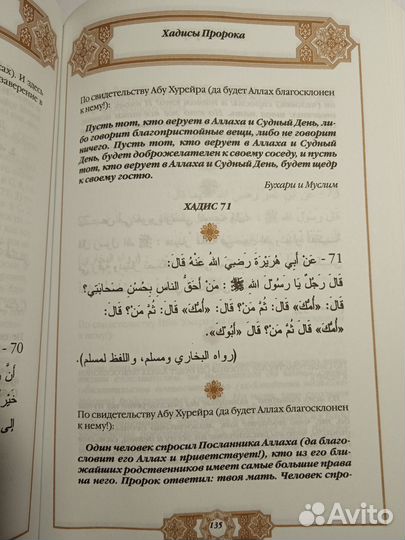 Хадисы Пророка
ах). И здесь
заверение в
По свидетельству Абу Хурейра (да будет Аллах благосклонен
к нему!):
Пусть тот, кто верует в Аллаха и Судный День, ли-
бо говорит благопристойные вещи, либо не говорит
ничего. Пусть тот, кто верует в Аллаха и Судный
День, будет доброжелателен к своему соседу, и пусть
тот, кто верует в Аллаха и Судный День, будет щедр
к своему гостю.
Бухари и Муслим
ХАДИС 71
71 - عَنْ أَبِي هُرَيْرَةَ رَضِيَ اللهُ عَنْهُ قَالَ:
قَالَ رَجُلٌ يَا رَسُولَ اللهِ ﷺ: مَنْ أَحَقُّ النَّاسِ بِحُسْنِ صَحَابَتِي؟
قَالَ: «أُمُّكَ» قَالَ: ثُمَّ مَنْ؟ قَالَ: «أُمُّكَ» قَالَ: ثُمَّ مَنْ؟ قَالَ:
«أُمُّكَ» قَالَ ثُمَّ مَنْ؟ قَالَ «أَبُوكَ».
(رواه البخاري ومسلم، واللفظ لمسلم).
70 -
По свидетельству Абу Хурейра (да будет Аллах благосклонен
к нему!):
Один человек спросил Посланника Аллаха (да благо-
словит его Аллах и приветствует!), кто из его бли-
жайших родственников имеет самые большие права
на него. Пророк ответил: твоя мать. Человек спро-
135
Avito